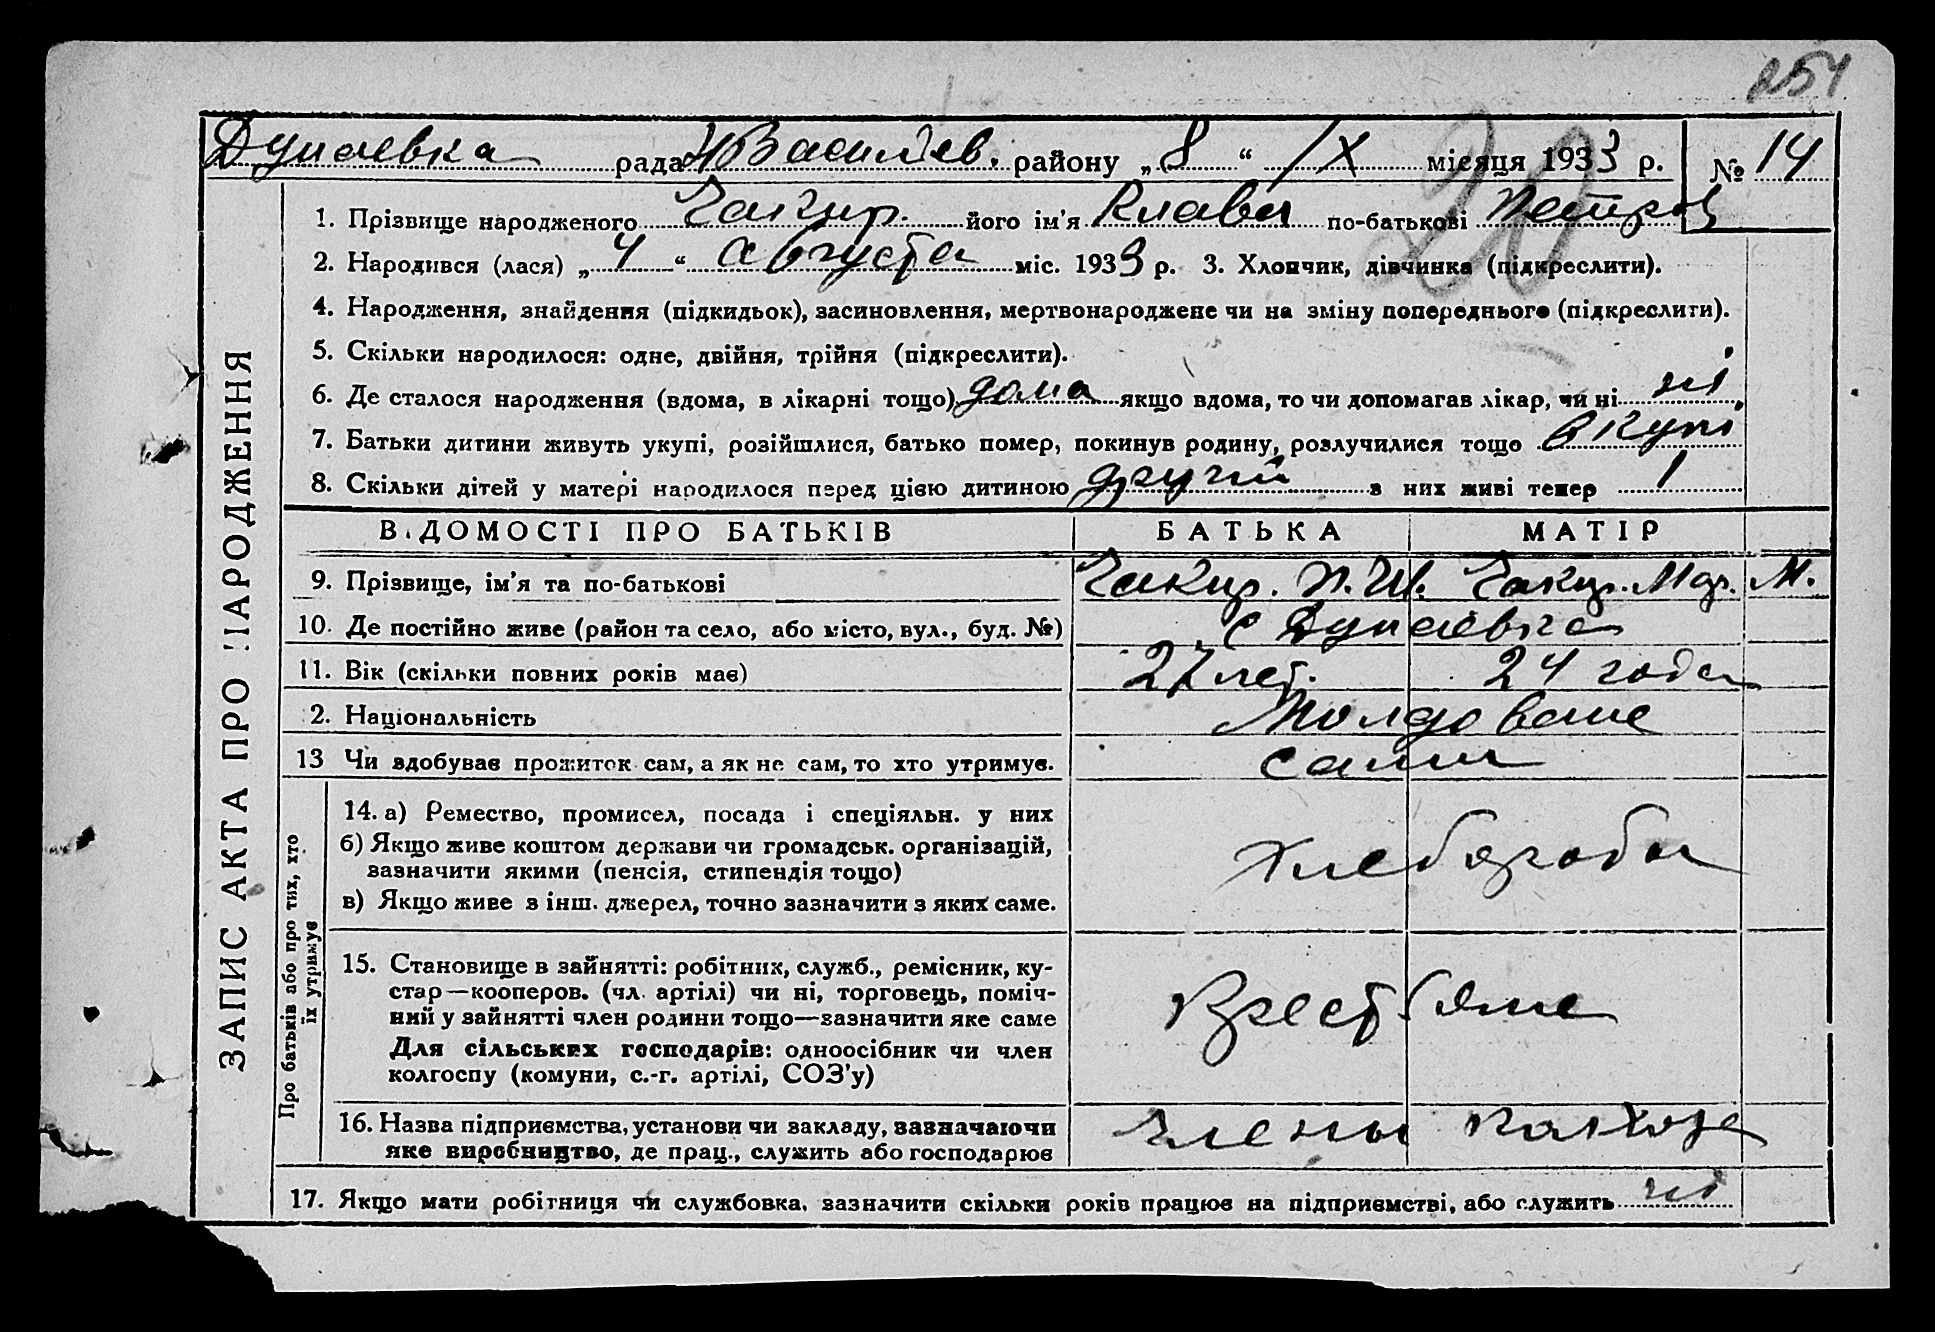 254
Дунаевка рада Н Васильев. району „ 8 “ IX місяця 1933 р. № 14
1. Прізвище народженого Чакир. його ім’я Клавея по-батькові Петров
2. Народився (лася) „ 4 “ августа міс. 1933 р. 3. Хлопчик, дівчинка (підкреслити).
4. Народження, знайдення (підкидьок), засиновлення, мертвонароджене чи на зміну попереднього (підкреслити).
5. Скільки народилося: одне, двійня, трійня (підкреслити).
6. Де сталося народження (вдома, в лікарні тощо) дома якщо вдома, то чи допомагав лікар, чи ні ні
7. Батьки дитини живуть укупі, розійшлися, батько помер, покинув родину, розлучилися тощо вкупі
8. Скільки дітей у матері народилося перед цією дитиною другий з них живі тепер 1
ЗАПИС АКТА ПРО НАРОДЖЕННЯ
ВІДОМОСТІ ПРО БАТЬКІВ БАТЬКА МАТІР
9. Прізвище, ім’я та по-батькові Чакир. П. Чакир. М.
10. Де постійно живе (район та село, або місто, вул., буд. №) с Дунаевка
11. Вік (скільки повних років має) 27 лет. 24 года
2. Національність Молдоване
13 Чи здобуває прожиток сам, а як не сам, то хто утримує. сами
Про батьків або про тих, хто
їх утримує
14. а) Ремество, промисел, посада і спеціяльн. у них
б) Якщо живе коштом держави чи громадськ. організацій,
зазначити якими (пенсія, стипендія тощо)
Хлебороби
в) Якщо живе з інш. джерел, точно зазначити з яких саме.
15. Становище в зайнятті: робітник, служб., ремісник, ку-
стар—кооперов. (чл. артілі) чи ні, торговець, поміч-
ний у зайнятті член родини тощо—зазначити яке саме
Крестьяне
Для сільських господарів: одноосібник чи член
колгоспу (комуни, с.-г. артілі, СОЗ’у)
16. Назва підприємства, установи чи закладу, зазначаючи
яке виробництво, де прац., служить або господарює
Члены колхоза
17. Якщо мати робітниця чи службовка, зазначити скільки років працює на підприємстві, або служить ні